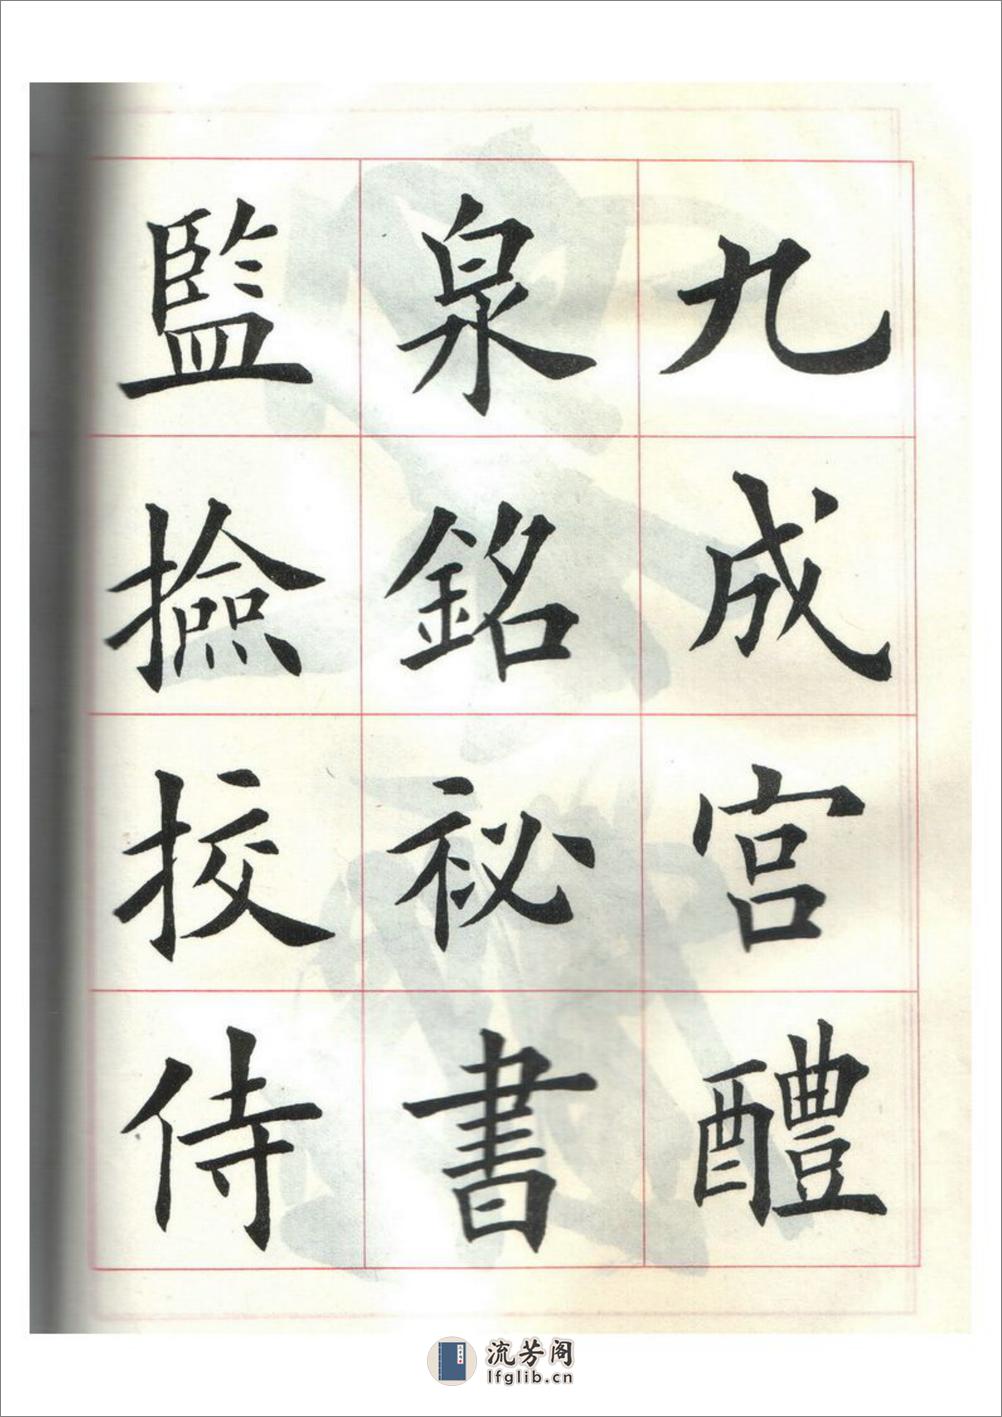 九成宫醴
泉銘祕書
監撿挍侍
流芳阁
lfglib.cn